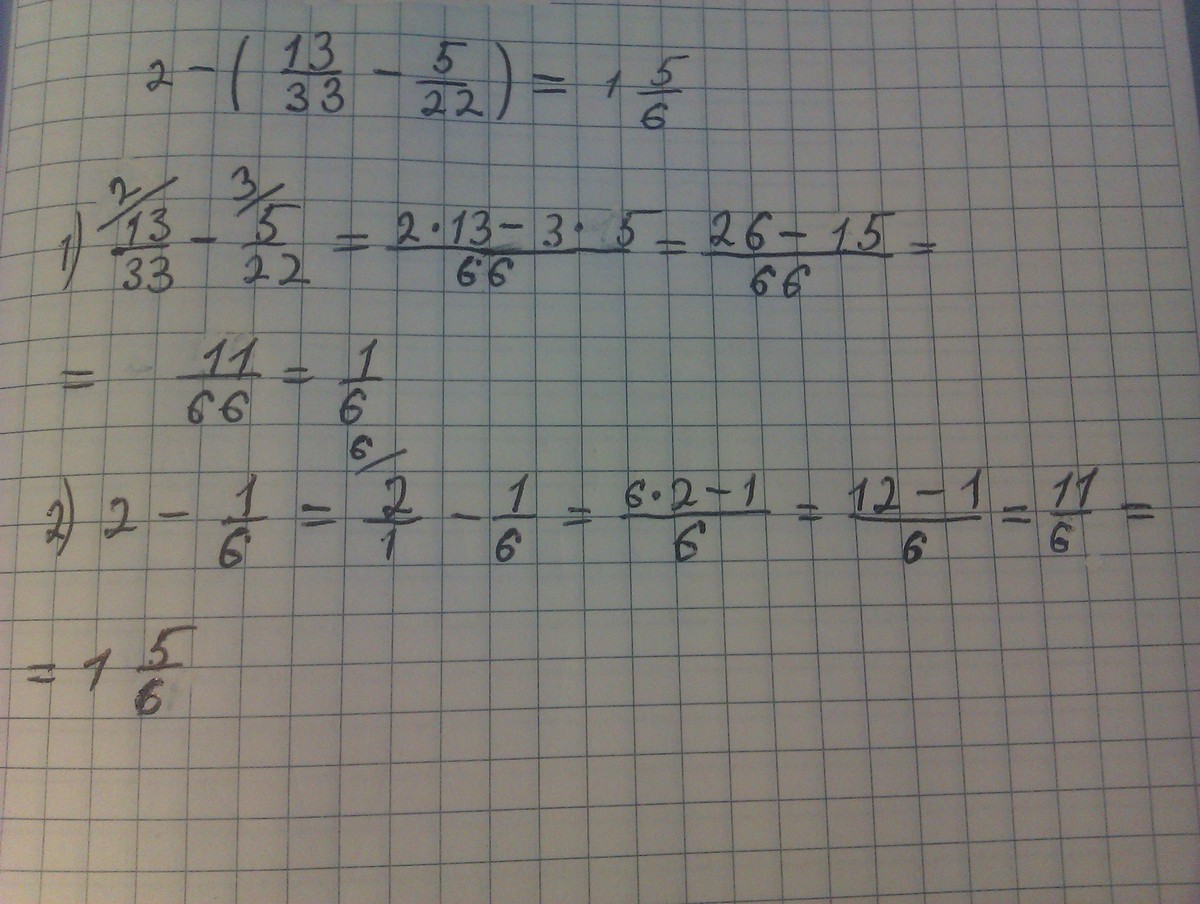 2 - ( 13/33 - 5/22 ) = 1 5/6
2/ 3/
1) 13/33 - 5/22 = 2·13 - 3·5/66 = 26 - 15/66 =
= 11/66 = 1/6
6/
2) 2 - 1/6 = 2/1 - 1/6 = 6·2 - 1/6 = 12 - 1/6 = 11/6 =
= 1 5/6